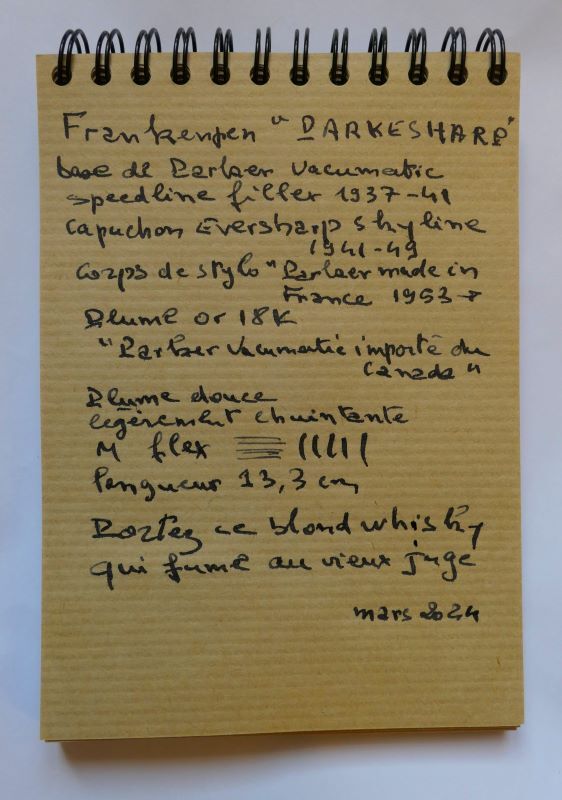 Frankenpen "PARKESHARP"
base de Parker Vacumatic
speedline filler 1937-41
Capuchon Eversharp skyline
1941-49
Corps de stylo "Parker made in
France 1953→
Plume or 18K
"Parker Vacumatic importé du
Canada"
Plume douce
légèrement chuintante
M flex
longueur 13,3 cm
Portez ce blond whisky
qui fume au vieux juge
mars 2024